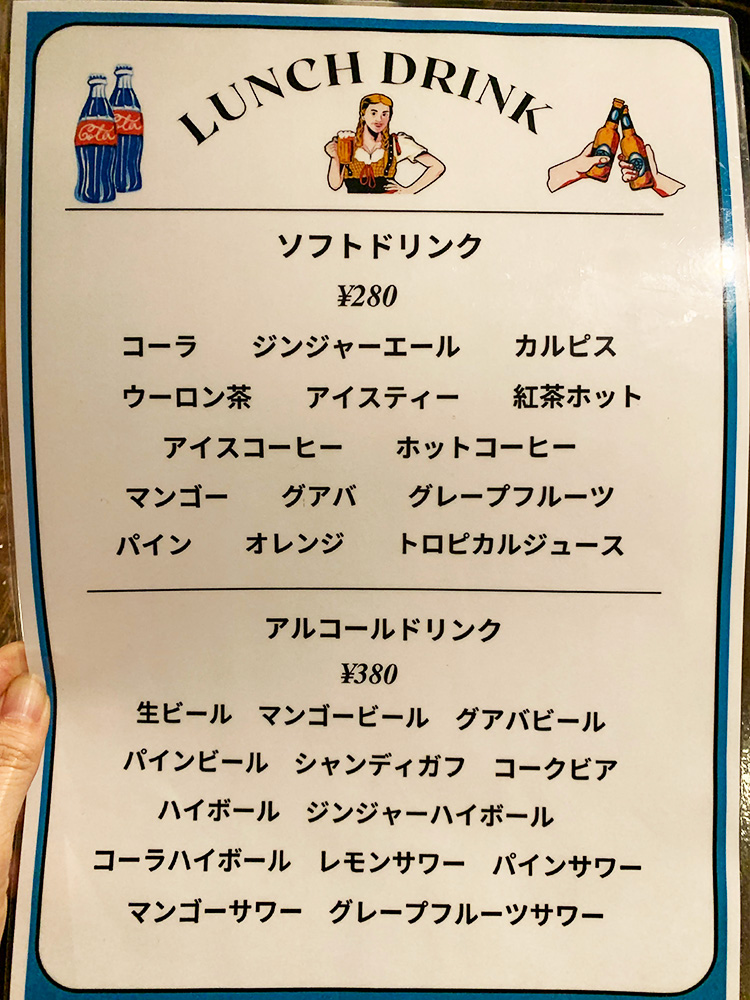 LUNCH DRINK
Cola Cola
ソフトドリンク
¥280
コーラ ジンジャーエール カルピス
ウーロン茶 アイスティー 紅茶ホット
アイスコーヒー ホットコーヒー
マンゴー グアバ グレープフルーツ
パイン オレンジ トロピカルジュース
アルコールドリンク
¥380
生ビール マンゴービール グアバビール
パインビール シャンディガフ コークビア
ハイボール ジンジャーハイボール
コーラハイボール レモンサワー パインサワー
マンゴーサワー グレープフルーツサワー